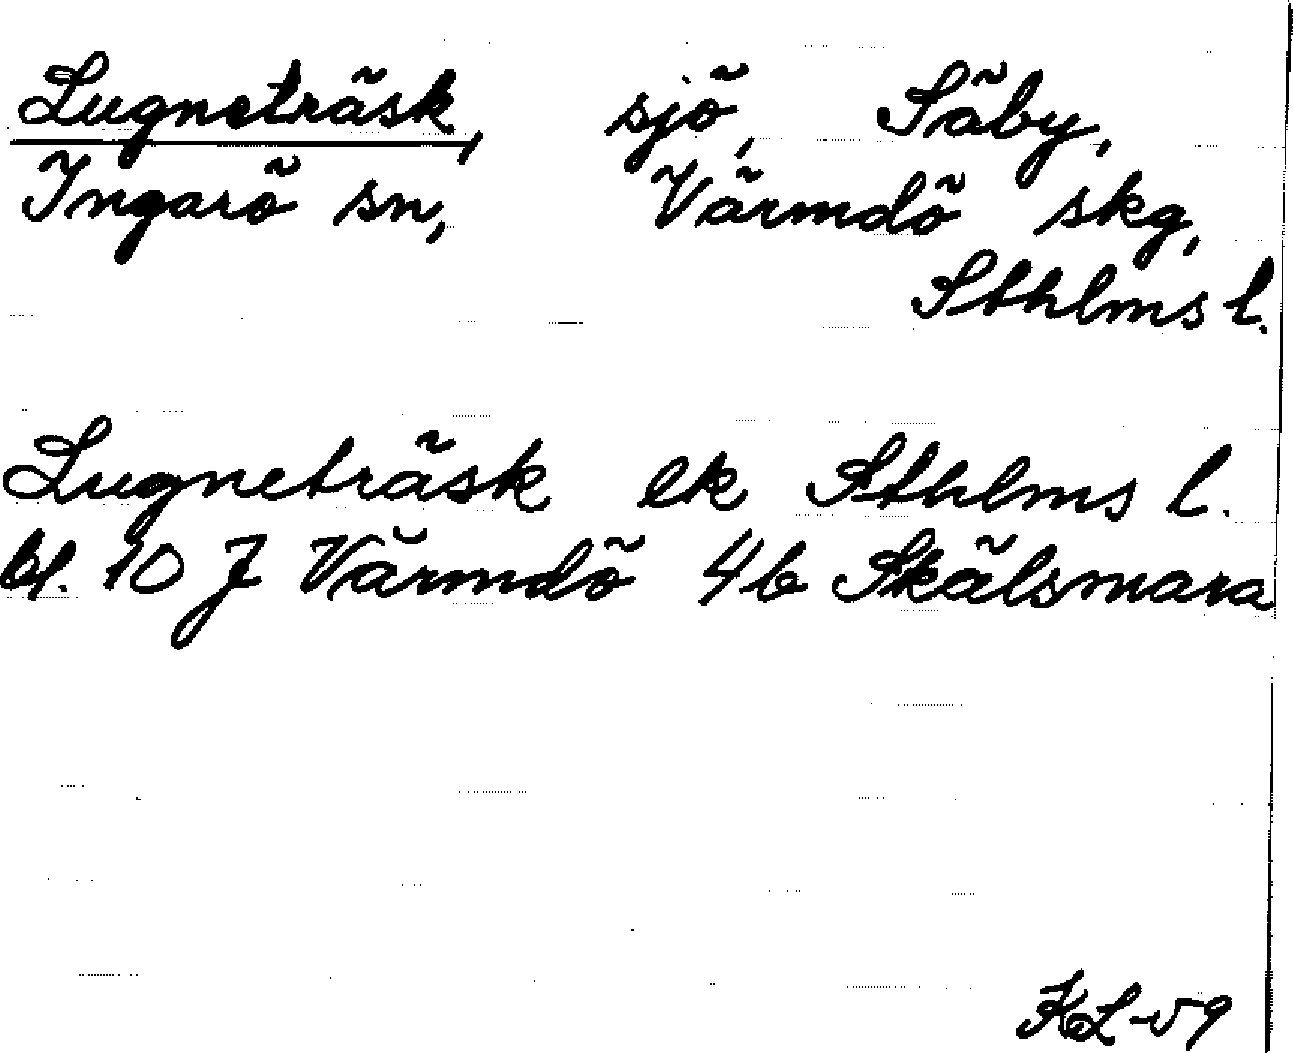 Lugneträsk, sjö, Säby,
Ingarö sn, Värmdö skg,
Sthlms l.
Lugneträsk ek Sthlms l.
bl. 10 J Värmdö 4b Skälsmara
KL-59